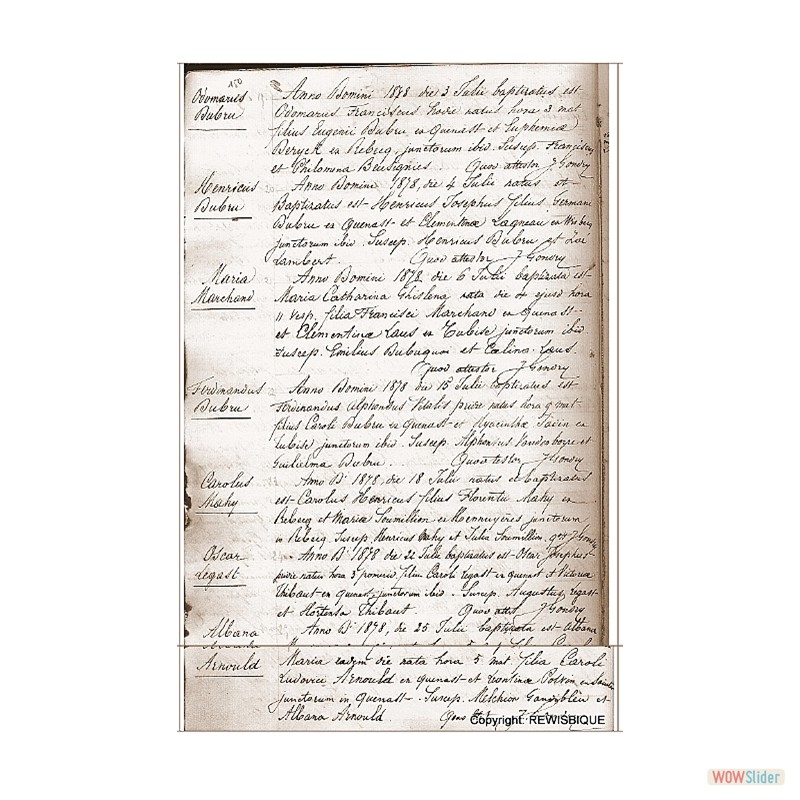 150
Odomarus Dubru
Anno Domini 1878 die 3 Julii baptizatus est
Odomarus Franciscus hodie natus hora 3 mat
filius Eugenii Dubru ex Quenast et Euphemiæ
Deryck ex Rebecq junctorum ibid. Suscep. Franciscus
et Philomena Beusignies. Quod attestor J Gondry
Henricus Dubru
Anno Domini 1878, die 4 Julii natus et
Baptizatus est Henricus Josephus filius Germani
Dubru ex Quenast et Clementinæ Lagneau ex
junctorum ibid. Suscep. Henricus Dubru et Zoe
Lambert. Quod attestor J Gondry
Maria Marchand
Anno Domini 1878 die 6 Julii baptizata est
Maria Catharina Ghislena nata die 4 ejusd hora
11 vesp. filia Francisci Marchand ex Quenast
et Clementinæ Laus ex Tubise junctorum ibid.
Suscep. Emilius Dubuquoi et Celina Laus.
Quod attestor J Gondry
Ferdinandus Dubru
Anno Domini 1878 die 15 Julii baptizatus est
Ferdinandus Alphonsus Vitalis pridie natus hora 9 mat
filius Caroli Dubru ex Quenast et Hyacinthæ ex
Tubise junctorum ibid. Suscep. Alphonsus Vandenborre et
Guilielma Dubru. Quod testor J Gondry
Carolus Mahy
Anno D 1878, die 18 Julii natus et baptizatus
est Carolus Henricus filius Florentii Mahy ex
Rebecq et Mariæ Soumillion ex Hennuyeres junctorum
in Rebecq. Suscep. Henricus Mahy et Julia Soumillion. J Gondry
Oscar Legast
Anno D 1878 die 22 Julii baptizatus est Oscar Joseph
pridie natus hora 3 filius Caroli Legast ex Quenast et Victoria
Thibaut ex Quenast, junctorum ibid. Suscep. Augustus Legast
et Hortensa Thibaut Quod attest J Gondry
Albana
Anno D 1878, die 25 Julii baptizata est Albana
Arnould
Maria eadem die nata hora 5 mat. filia Caroli
Ludovici Arnould ex Quenast et Leontinæ Potvin ex
junctorum in Quenast. Suscep. Melchior et
Albana Arnould. Quod
Copyright: REWISBIQUE
WOWSlider